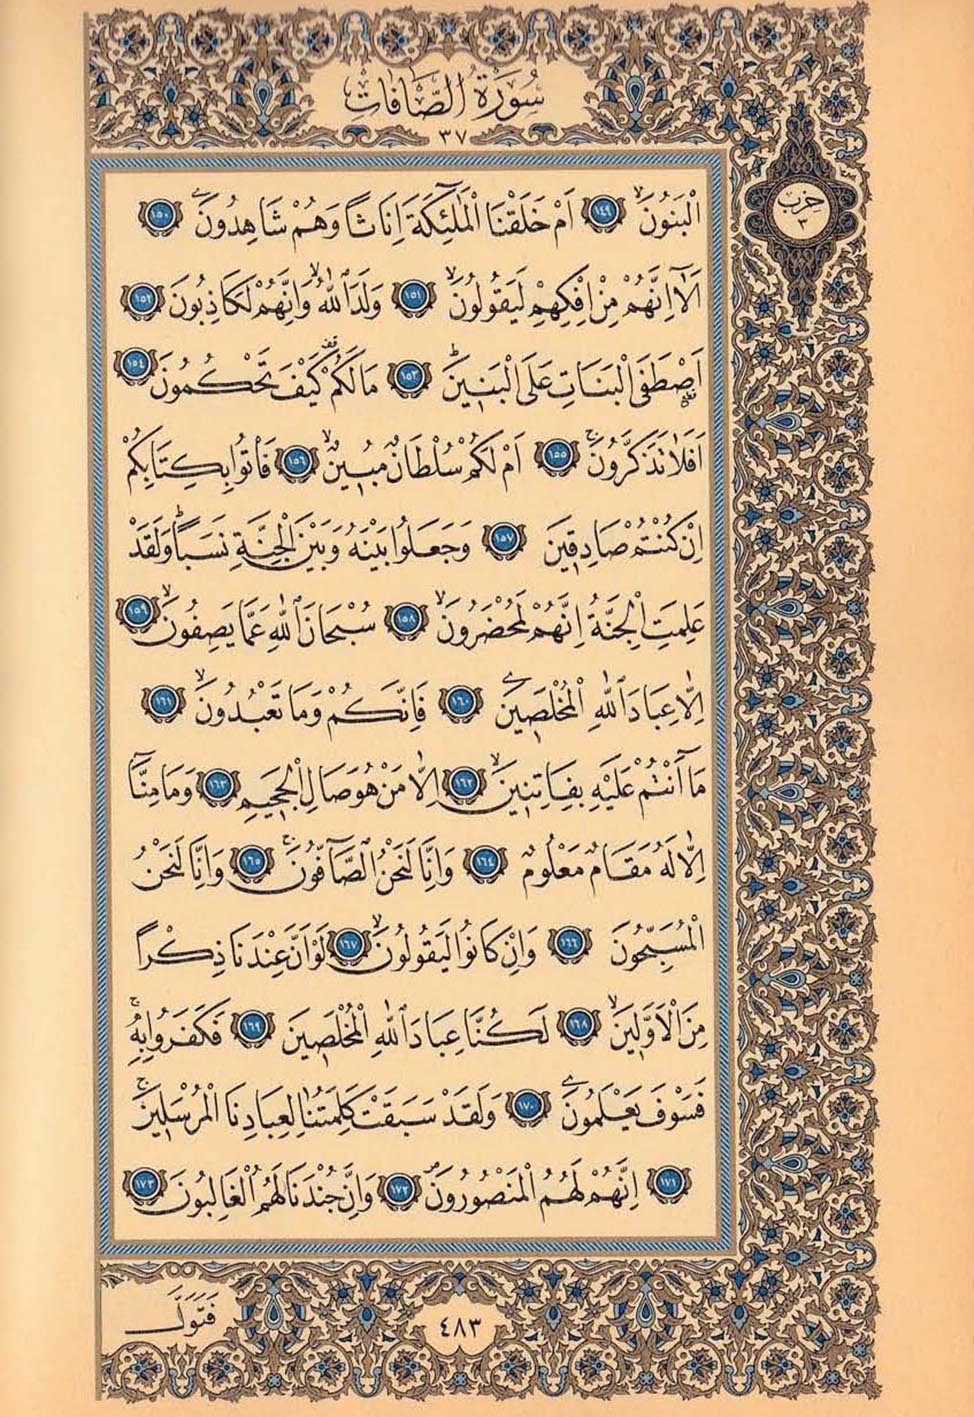 سُورَةُ الصَّافَّاتِ
٣٧
حزب
٣
الْبَنُونَۙ ﴿١٤٩﴾ اَمْ خَلَقْنَا الْمَلٰٓئِكَةَ اِنَاثًا وَهُمْ شَاهِدُونَ ﴿١٥٠﴾
اَلَٓا اِنَّهُمْ مِنْ اِفْكِهِمْ لَيَقُولُونَۙ ﴿١٥١﴾ وَلَدَ اللّٰهُۙ وَاِنَّهُمْ لَكَاذِبُونَ ﴿١٥٢﴾
اَصْطَفَى الْبَنَاتِ عَلَى الْبَنٖينَؕ ﴿١٥٣﴾ مَا لَكُمْ۠ كَيْفَ تَحْكُمُونَ ﴿١٥٤﴾
اَفَلَا تَذَكَّرُونَۚ ﴿١٥٥﴾ اَمْ لَكُمْ سُلْطَانٌ مُبٖينٌۙ ﴿١٥٦﴾ فَأْتُوا بِكِتَابِكُمْ
اِنْ كُنْتُمْ صَادِقٖينَ ﴿١٥٧﴾ وَجَعَلُوا بَيْنَهُ وَبَيْنَ الْجِنَّةِ نَسَبًاؕ وَلَقَدْ
عَلِمَتِ الْجِنَّةُ اِنَّهُمْ لَمُحْضَرُونَۙ ﴿١٥٨﴾ سُبْحَانَ اللّٰهِ عَمَّا يَصِفُونَۙ ﴿١٥٩﴾
اِلَّا عِبَادَ اللّٰهِ الْمُخْلَصٖينَ ﴿١٦٠﴾ فَاِنَّكُمْ وَمَا تَعْبُدُونَۙ ﴿١٦١﴾
مَٓا اَنْتُمْ عَلَيْهِ بِفَاتِنٖينَۙ ﴿١٦٢﴾ اِلَّا مَنْ هُوَ صَالِ الْجَحٖيمِ ﴿١٦٣﴾ وَمَا مِنَّٓا
اِلَّا لَهُ مَقَامٌ مَعْلُومٌ ﴿١٦٤﴾ وَاِنَّا لَنَحْنُ الصَّٓافُّونَۚ ﴿١٦٥﴾ وَاِنَّا لَنَحْنُ
الْمُسَبِّحُونَ ﴿١٦٦﴾ وَاِنْ كَانُوا لَيَقُولُونَۙ ﴿١٦٧﴾ لَوْ اَنَّ عِنْدَنَا ذِكْرًا
مِنَ الْاَوَّلٖينَۙ ﴿١٦٨﴾ لَكُنَّا عِبَادَ اللّٰهِ الْمُخْلَصٖينَ ﴿١٦٩﴾ فَكَفَرُوا بِهٖۚ
فَسَوْفَ يَعْلَمُونَ ﴿١٧٠﴾ وَلَقَدْ سَبَقَتْ كَلِمَتُنَا لِعِبَادِنَا الْمُرْسَلٖينَۚ
﴿١٧١﴾ اِنَّهُمْ لَهُمُ الْمَنْصُورُونَ ﴿١٧٢﴾ وَاِنَّ جُنْدَنَا لَهُمُ الْغَالِبُونَ ﴿١٧٣﴾
فَتَوَلَّ
٤٨٣